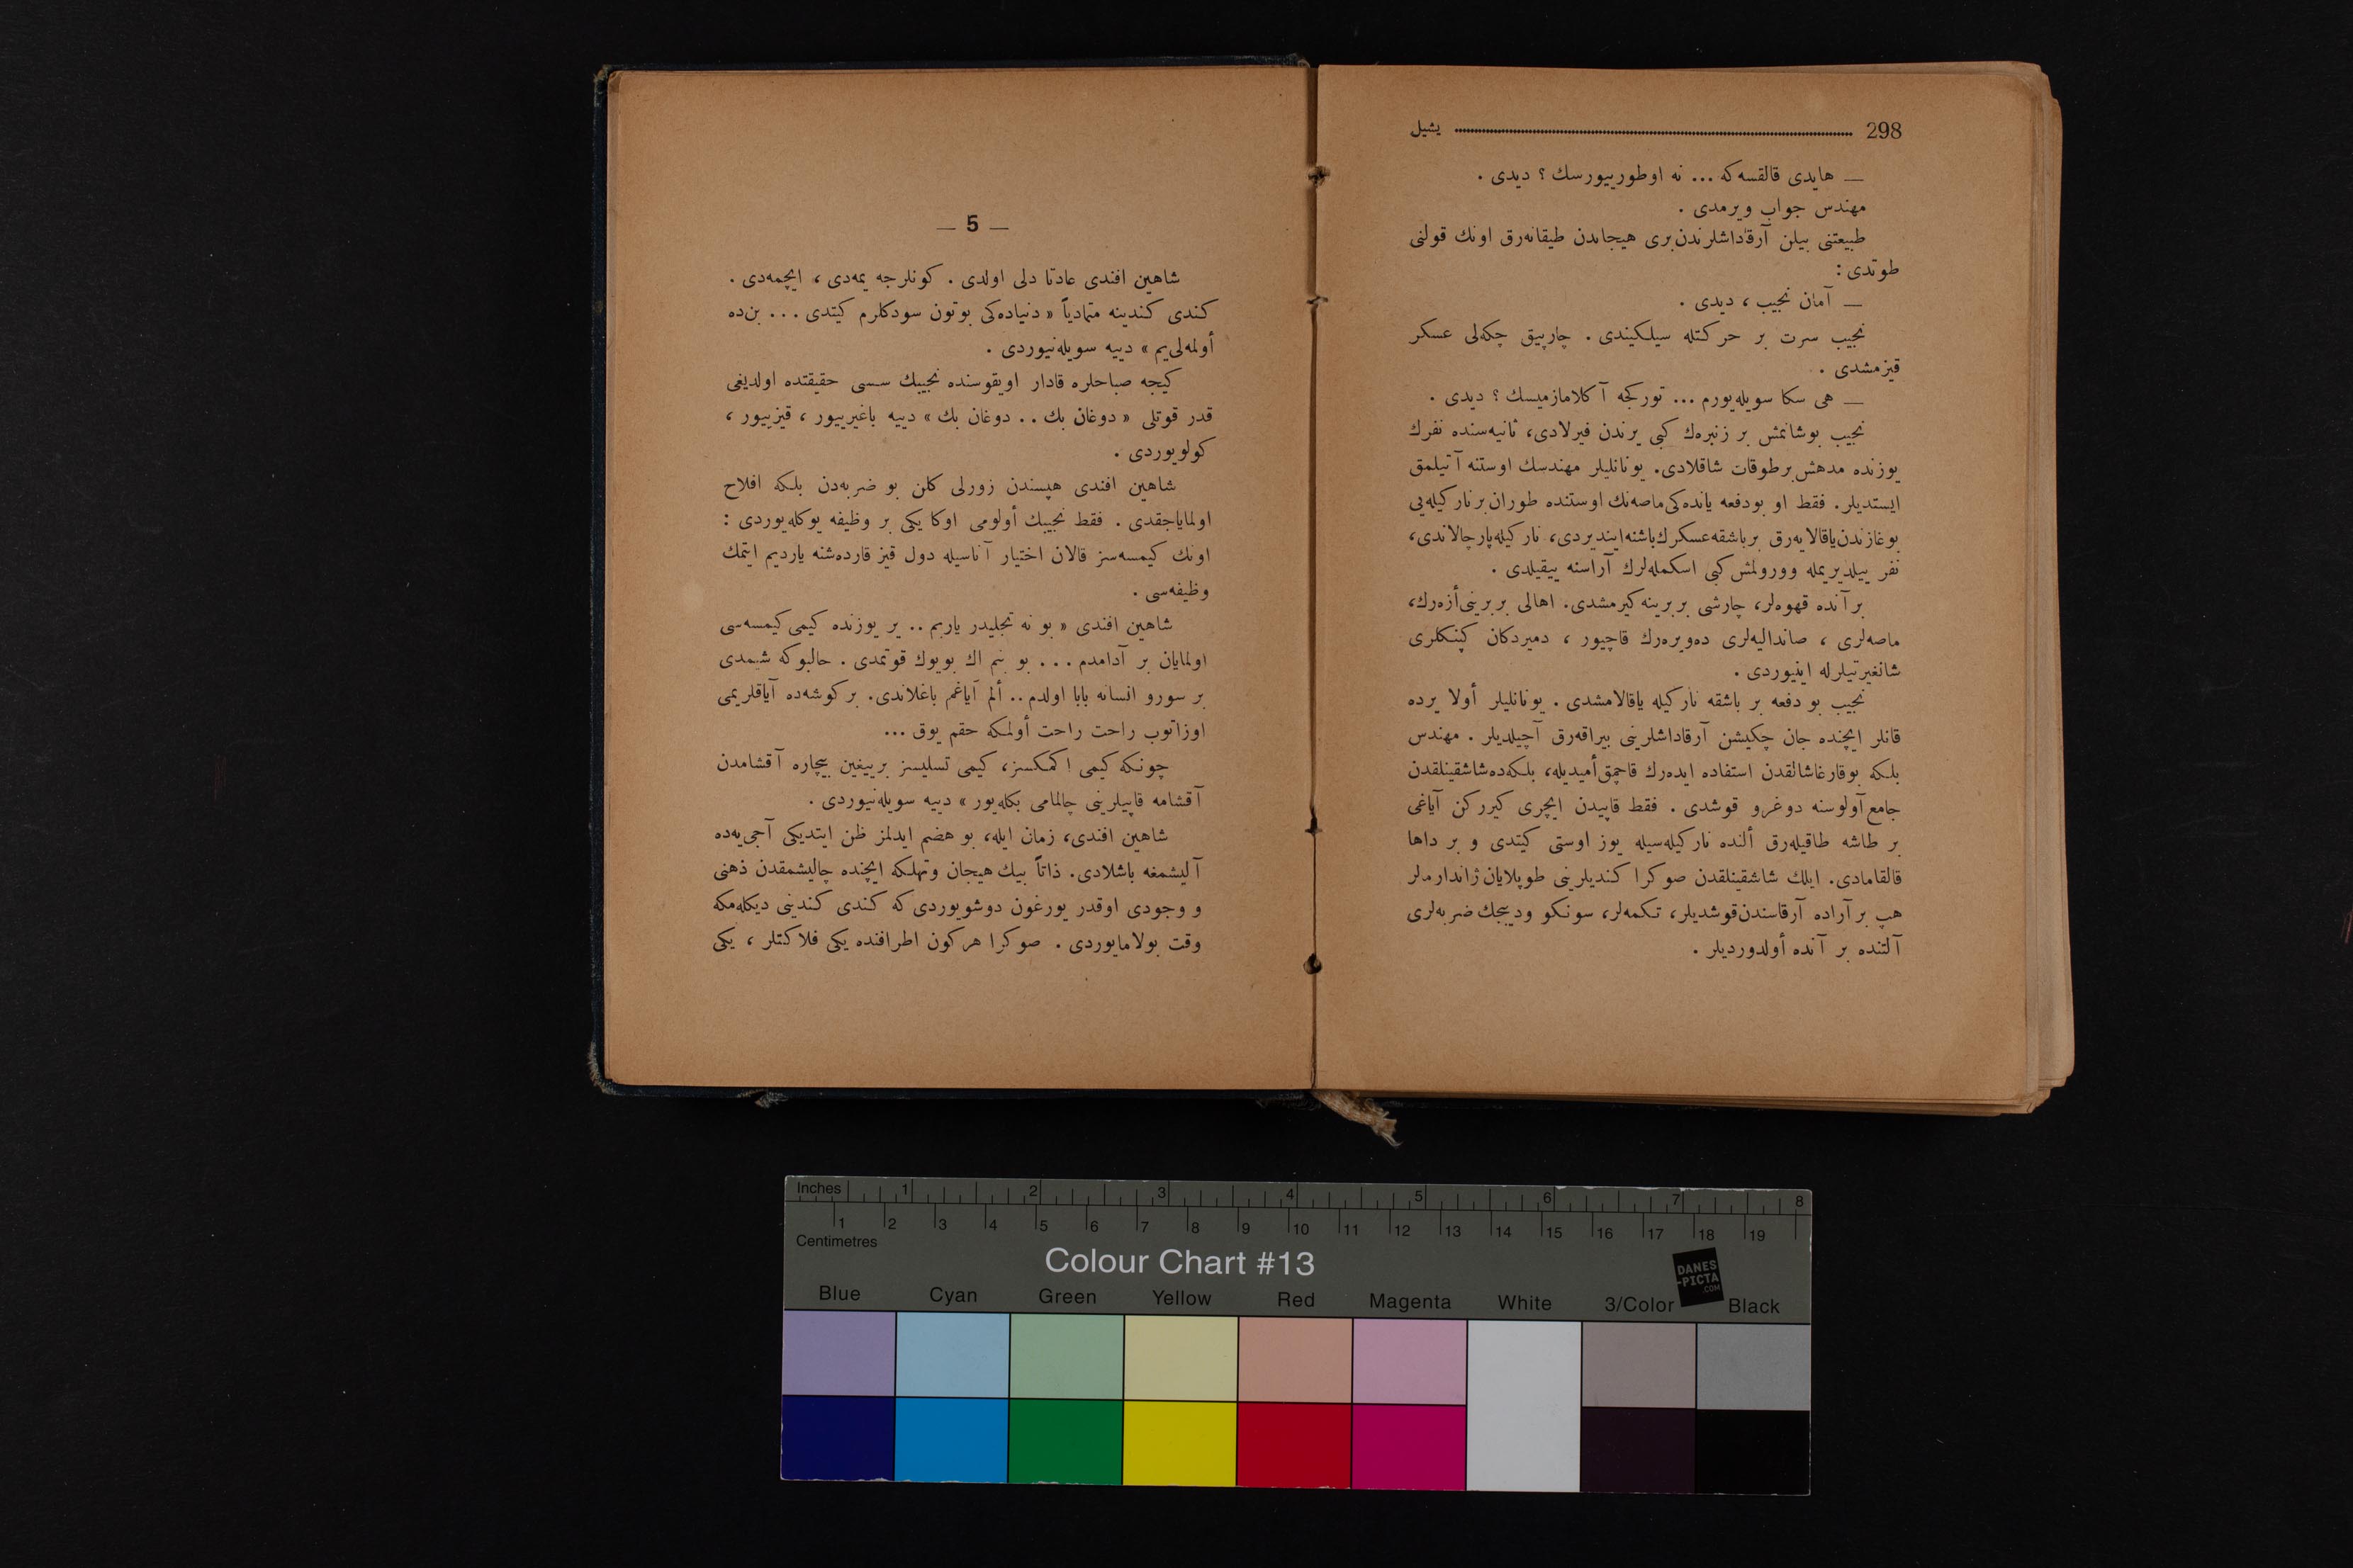 298 يشيل
— هايدى قالقسه‌كه ... نه اوطورييورسك ؟ ديدى .
مهندس جواب ويرمدى .
طبيعتنى بيلن آرقداشلرندن برى هيجاندن طيقانه‌رق اونك قولنى
طوتدى :
— آمان نجيب ، ديدى .
نجيب سرت بر حركتله سيلكيندى . چارپيق چكه‌لى عسكر
قيزمشدى .
— هى سكا سويله‌يورم ... توركجه آكلامازميسك ؟ ديدى .
نجيب بوشانمش بر زنبرك كبى يرندن فيرلادى، ثانيه‌سنده نفرك
يوزنده مدهش بر طوقات شاقلادى. يونانليلر مهندسك اوستنه آتيلمق
ايستديلر. فقط او بودفعه يانده‌كى ماصه‌نك اوستنده طوران بر ناركيله‌يى
بوغازندن ياقالايه‌رق بر باشقه عسكرك باشنه اينديردى، ناركيله پارچالاندى،
نفر ييلديريمله وورولمش كبى اسكمله‌لرك آراسنه ييقيلدى .
بر آنده قهوه‌لر، چارشى بربرينه كيرمشدى. اهالى بربرينى أزه‌رك،
ماصه‌لرى ، صانداليه‌لرى ده‌ويره‌رك قاچيور ، دميردكان كپنكلرى
شانغيرتيلرله اينيوردى .
نجيب بو دفعه بر باشقه ناركيله ياقالامشدى . يونانليلر أولا يرده
قانلر ايچنده جان چكيشن آرقاداشلرينى بيراقه‌رق آچيلديلر . مهندس
بلكه بوقارغاشالقدن استفاده ايده‌رك قاچمق أميديله، بلكه‌ده شاشقينلقدن
جامع آولوسنه دوغرو قوشدى . فقط قاپيدن ايچرى كيرركن آياغى
بر طاشه طاقيله‌رق ألنده ناركيله‌سيله يوز اوستى كيتدى و بر داها
قالقامادى. ايلك شاشقينلقدن صوكرا كنديلرينى طوپلايان ژاندارمه‌لر
هپ بر آراده آرقاسندن قوشديلر، تكمه‌لر، سونكو وديپجك ضربه‌لرى
آلتنده بر آنده أولدورديلر .
— 5 —
شاهين افندى عادتا دلى اولدى . كونلرجه يمه‌دى ، ايچمه‌دى .
كندى كندينه متمادياً « دنياده‌كى بوتون سودكلرم كيتدى ... بن‌ده
أولمه‌لى‌يم » دييه سويله‌نيوردى .
كيجه صباحلره قادار اويقوسنده نجيبك سسى حقيقتده اولديغى
قدر قوتلى « دوغان بك .. دوغان بك » دييه باغيرييور ، قيزييور ،
كولويوردى .
شاهين افندى هپسندن زورلى كلن بو ضربه‌دن بلكه افلاح
اولماياجقدى . فقط نجيبك أولومى اوكا يكى بر وظيفه يوكله‌يوردى :
اونك كيمسه‌سز قالان اختيار آناسيله دول قيز قارده‌شنه يارديم ايتمك
وظيفه‌سى .
شاهين افندى « بو نه تجليدر ياربم .. ير يوزنده كيمى كيمسه‌سى
اولمايان بر آدامدم ... بو بنم اك بويوك قوتمدى . حالبوكه شيمدى
بر سورو انسانه بابا اولدم .. ألم آياغم باغلاندى. بر كوشه‌ده آياقلريمى
اوزاتوب راحت راحت أولمكه حقم يوق ...
چونكه كيمى اكمكسز، كيمى تسليسز بر ييغين بيچاره آقشامدن
آقشامه قاپيلرينى چالمامى بكله‌يور » دييه سويله‌نيوردى .
شاهين افندى، زمان ايله، بو هضم ايدلمز ظن ايتديكى آجى‌يه‌ده
آليشمغه باشلادى. ذاتاً بيك هيجان وتهلكه ايچنده چاليشمقدن ذهنى
و وجودى اوقدر يورغون دوشويوردى كه كندى كندينى ديكله‌مكه
وقت بولامايوردى . صوكرا هركون اطرافنده يكى فلاكتلر ، يكى
Inches 1 2 3 4 5 6 7 8
1 2 3 4 5 6 7 8 9 10 11 12 13 14 15 16 17 18 19
Centimetres
Colour Chart #13
DANES
-PICTA
.COM
Blue Cyan Green Yellow Red Magenta White 3/Color Black